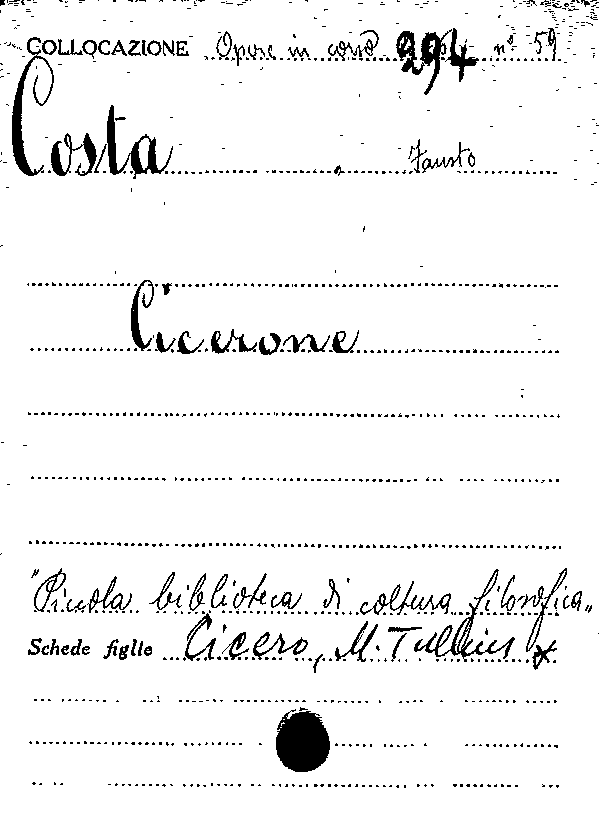 COLLOCAZIONE Opere in corso 294 nº 59
Costa, Fausto
Cicerone
"Piccola biblioteca di coltura filosofica„
Schede figlie Cicero, M. Tullius x